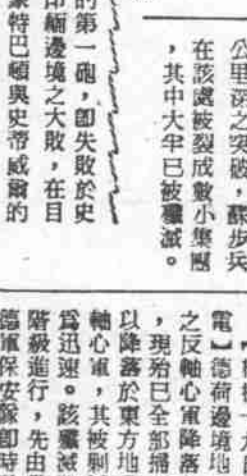 公里深之突破，蘇步兵
在該處被裂成數小集團
，其中大半已被殲滅。
的第一砲，即失敗於史
印緬邊境之大敗，在目
蒙特巴頓與史蒂威爾的
電】德荷邊境地
之反軸心軍降落
，現殆已全部掃
以降落於東方地
軸心軍，其被剿
爲迅速。該殲滅
階級進行，先由
德軍保安隊即時